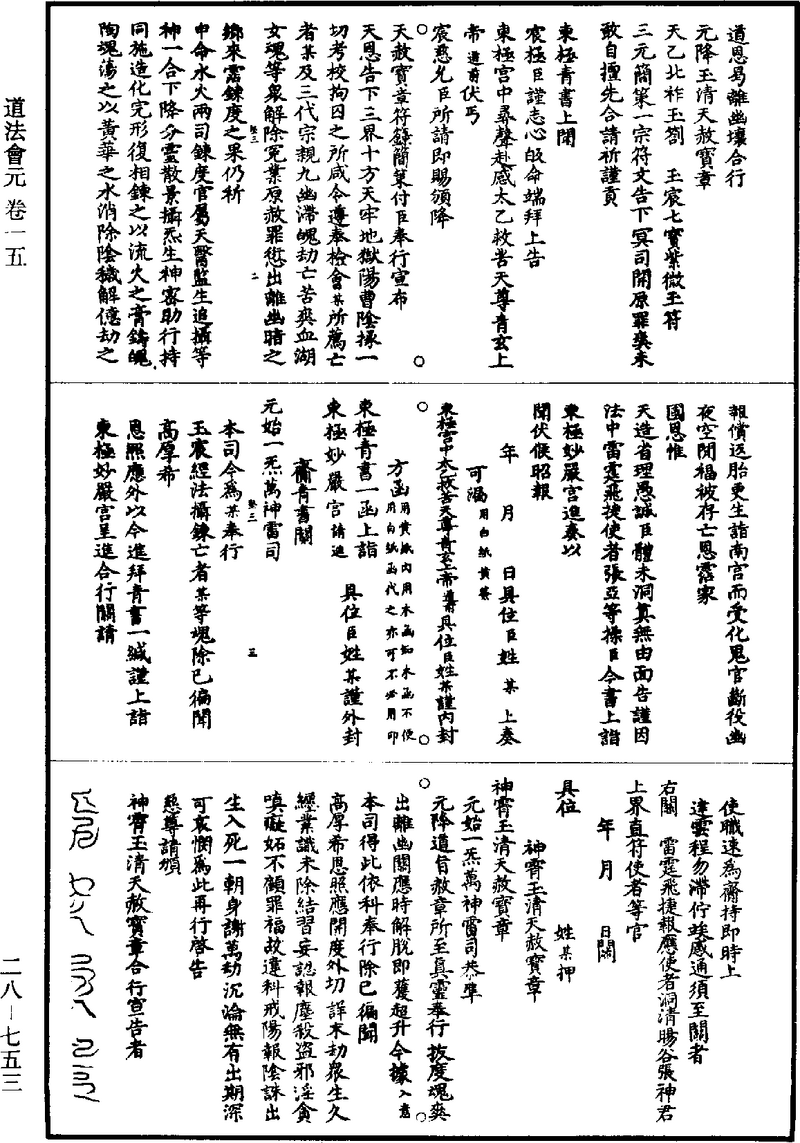 道法會元 卷一五
道恩易離幽壤合行
元降玉清天赦寶章
天乙北祚玉劄 玉宸七寶紫微玉符
三元簡策一宗符文告下冥司開原罪爽未
敢自擅先合請祈謹貢
東極青書上聞
宸極臣謹志心皈命端拜上告
東極宮中尋聲赴感太乙救苦天尊青玄上
帝道前伏丐
宸慈允臣所請即賜頒降
天赦寶章符籙簡策付臣奉行宣布
天恩告下三界十方天牢地獄陽曹陰掾一
切考校拘囚之所咸令遵奉檢會某所薦亡
者某及三代宗親九幽滯魄劫亡苦爽血湖
女魂等衆解除冤業原赦罪愆出離幽暗之
鄉來霑鍊度之果仍祈
中命水火兩司鍊度官屬天醫監生追攝等
神一合下降分靈散景攝炁生神密助行持
同施造化完形復相鍊之以流火之膏鑄魄
陶魂蕩之以黃華之水消除陰穢解億劫之
報償返胎更生詣南宮而受化鬼官斷役幽
夜空閑福被存亡恩霑家
國恩惟
天造省理愚誠臣體未洞真無由面告謹因
法中雷霆飛捷使者張亞等操臣今書上詣
東極妙嚴宮進奏以
聞伏候昭報
年 月 日具位臣姓 某 上奏
可漏用白紙黃籤
東極宮中太乙救苦天尊青玄上帝道前具位臣姓某謹內封
方函用黃紙內用木函如木函不便用白紙函代之亦可不必用印
東極青書一函上詣
東極妙嚴宮請進 具位臣姓某謹外封
齋青書關
元始一炁萬神雷司
本司今為某奉行
玉宸經法攝鍊亡者某等魂除已徧聞
高厚希
恩照應外以今進拜青書一緘謹上詣
東極妙嚴宮呈進合行關請
使職速為齋持即時上
達雲程勿滯佇竢感通須至關者
右關 雷霆飛捷報應使者洞清暘谷張神君
上界直符使者等官
年 月 日關
具位 姓某押
神霄玉清天赦寶章
神霄玉清天赦寶章
元始一炁萬神雷司恭準
元降道旨赦章所至真靈奉行拔度魂爽
出離幽關應時解脫即獲超升今據入意
本司得此依科奉行除已徧聞
高厚希恩照應開度外切詳末劫眾生久
經業識未除結習妄認報塵殺盜邪淫貪
嗔癡妬不顧罪福故違科戒陽報陰誅出
生入死一朝身謝萬劫沉淪無有出期深
可哀憫為此再行啓告
慈尊請頒
神霄玉清天赦寶章合行宣告者
二八—七五三